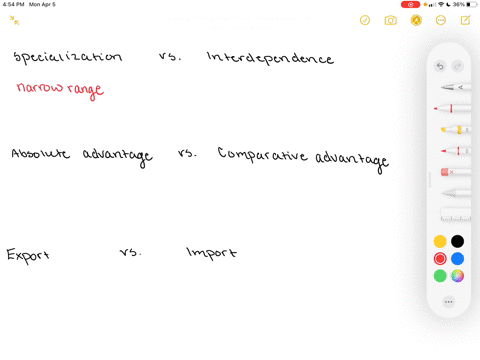 4:54 PM Mon Apr 5
36%
Specialization vs. Interdependence
narrow range
Absolute advantage vs. Comparative advantage
Export vs. Import